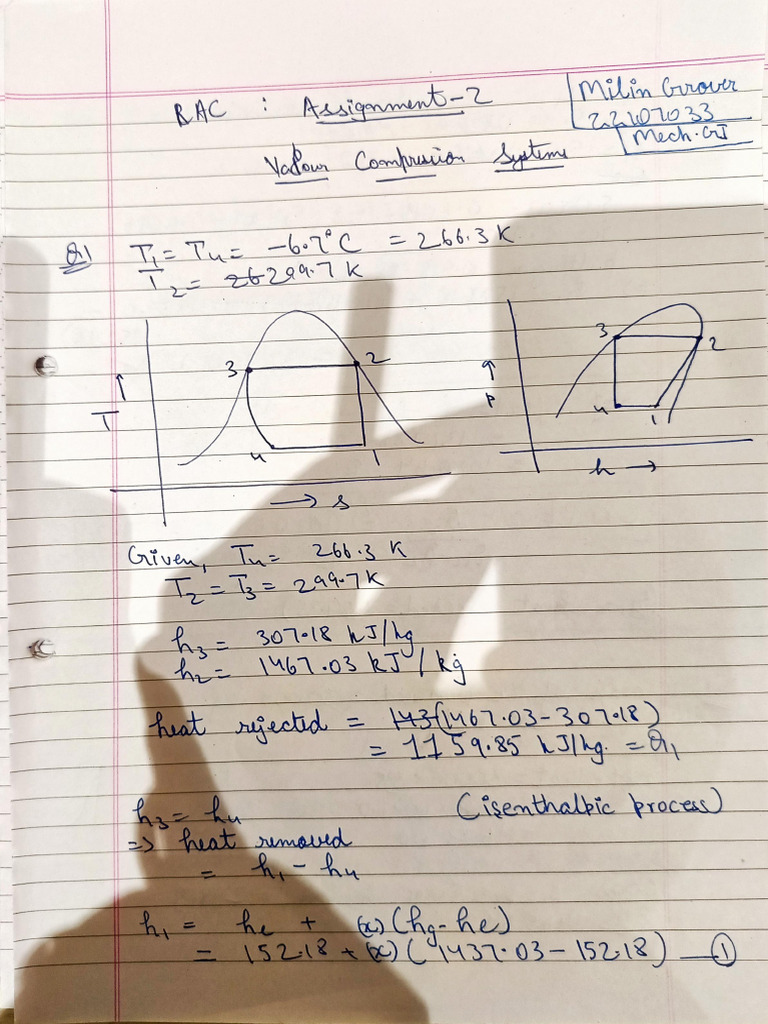 RAC : Assignment-2
Milin Grover
22107033
Mech. G1
Vapour Compression Systems
Q1 T1 = T4 = -6.7°C = 266.3 K
T2 = 26 299.7 K
3 2
T
4 1
s
3 2
P
4 1
h
Given, T4 = 266.3 K
T2 = T3 = 299.7 K
h3 = 307.18 kJ/kg
h2 = 1467.03 kJ/kg
heat rejected = 143 (1467.03 - 307.18)
= 1159.85 kJ/kg. = Q1
h3 = h4 (isenthalpic process)
=> heat removed
= h1 - h4
h1 = he + (x) (hg - he)
= 152.18 + (x) (1437.03 - 152.18) — ①